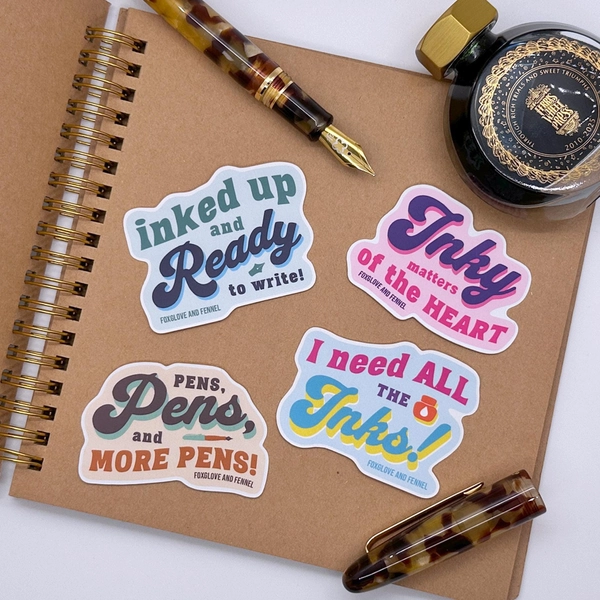 inked up
and
Ready
to write!
FOXGLOVE AND FENNEL
Inky
matters
of the HEART
FOXGLOVE AND FENNEL
PENS,
Pens,
and
MORE PENS!
FOXGLOVE AND FENNEL
I need ALL
THE
Inks!
FOXGLOVE AND FENNEL
THROUGH RICH TRIALS AND SWEET TRIUMPH
2010-2025